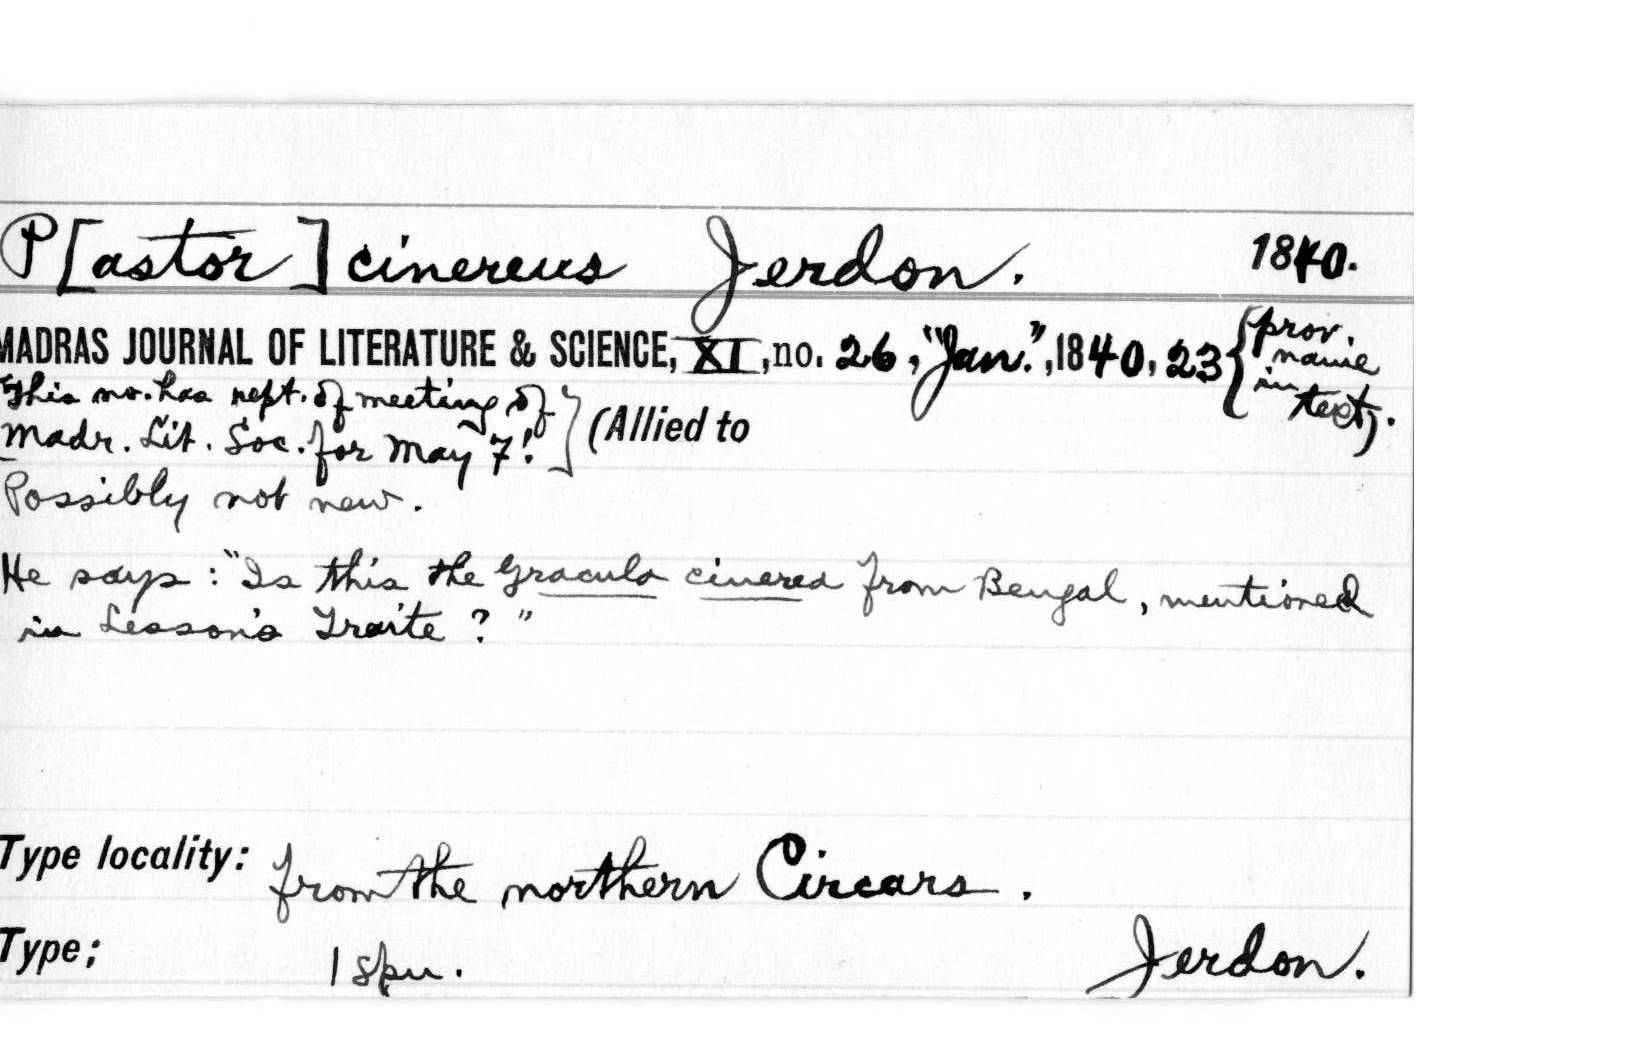 P[astor] cinereus Jerdon. 1840.
MADRAS JOURNAL OF LITERATURE & SCIENCE, XI, no. 26, "Jan.", 1840, 23 { prov.
name
in
text).
This no. has rept. of meeting of
Madr. Lit. Soc. for May 7! } (Allied to
Possibly not new.
He says: "Is this the Gracula cinerea from Bengal, mentioned
in Lesson's Traite?"
Type locality: from the northern Circars.
Type; 1 spn. Jerdon.